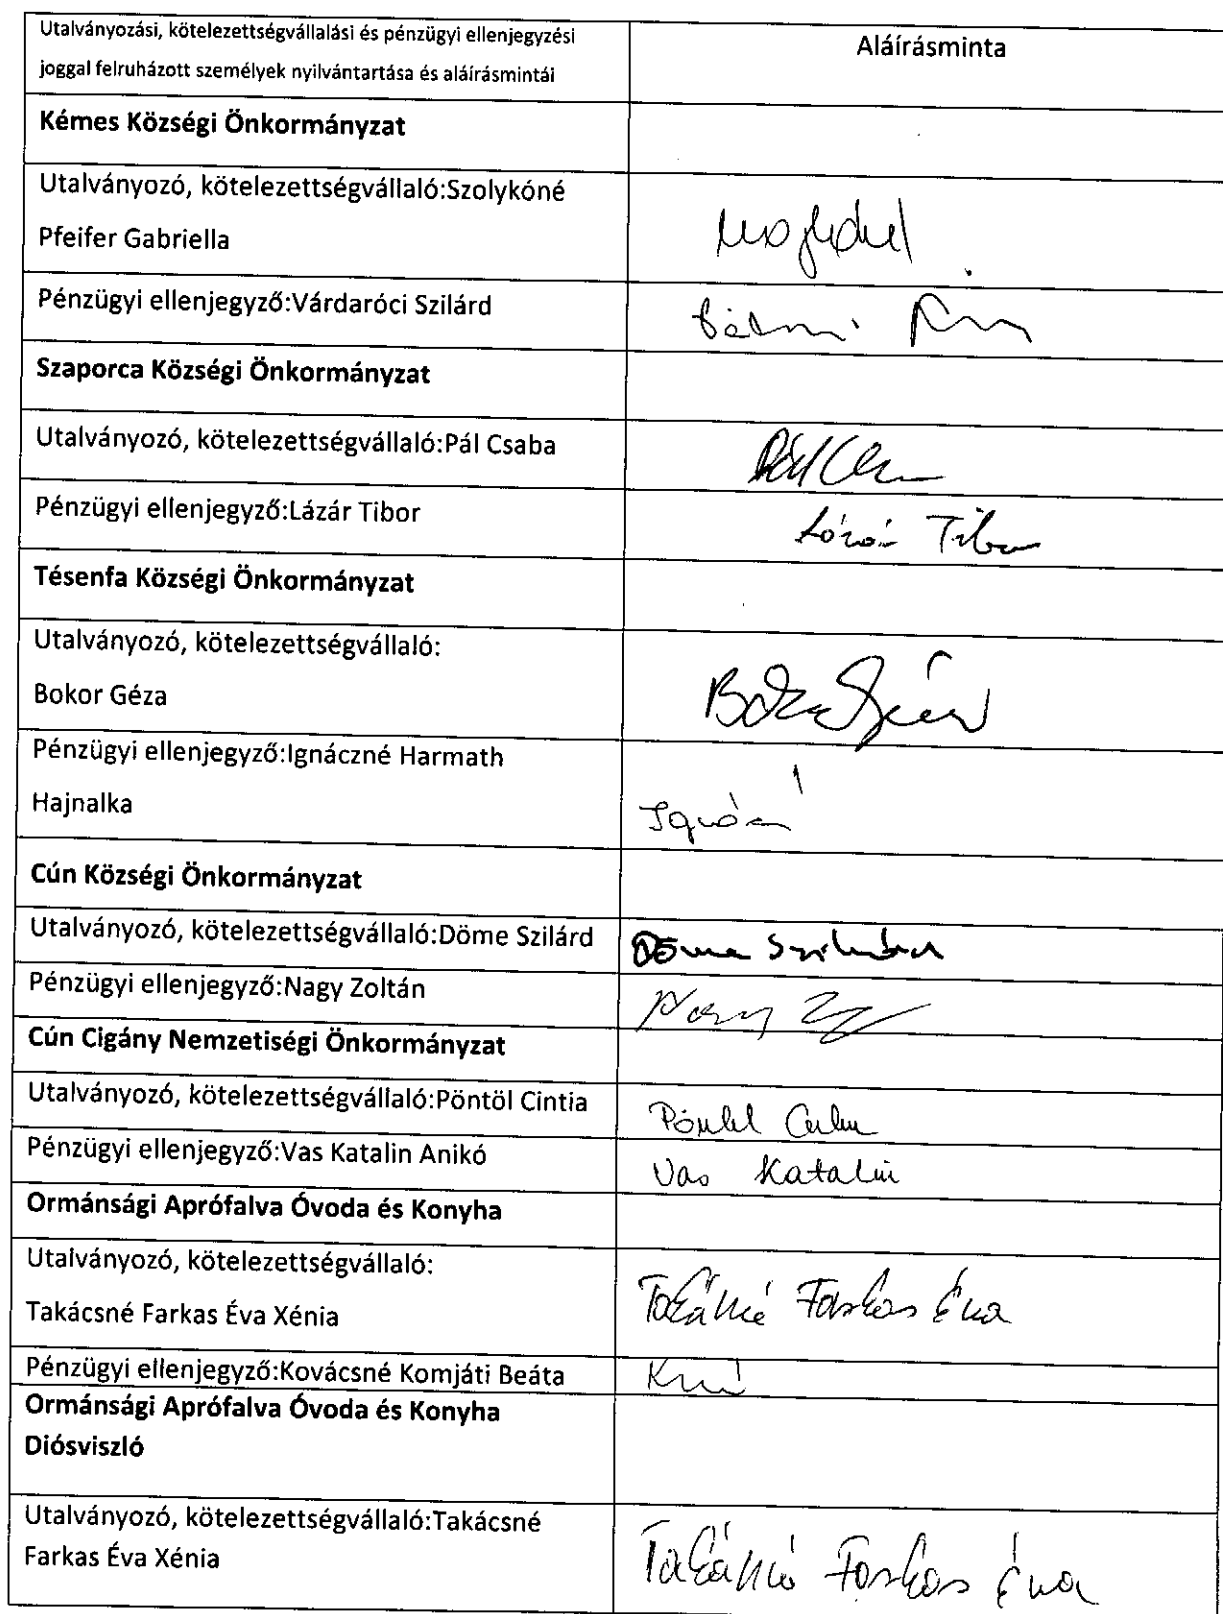 Utalványozási, kötelezettségvállalási és pénzügyi ellenjegyzési
joggal felruházott személyek nyilvántartása és aláírásmintái
Aláírásminta
Kémes Községi Önkormányzat
Utalványozó, kötelezettségvállaló:Szolykóné
Pfeifer Gabriella
Pénzügyi ellenjegyző:Várdaróci Szilárd
Szaporca Községi Önkormányzat
Utalványozó, kötelezettségvállaló:Pál Csaba
Pénzügyi ellenjegyző:Lázár Tibor
Lázár Tibor
Tésenfa Községi Önkormányzat
Utalványozó, kötelezettségvállaló:
Bokor Géza
Pénzügyi ellenjegyző:Ignáczné Harmath
Hajnalka
Cún Községi Önkormányzat
Utalványozó, kötelezettségvállaló:Döme Szilárd
Döme Szilárd
Pénzügyi ellenjegyző:Nagy Zoltán
Nagy
Cún Cigány Nemzetiségi Önkormányzat
Utalványozó, kötelezettségvállaló:Pöntöl Cintia
Pénzügyi ellenjegyző:Vas Katalin Anikó
Vas Katalin
Ormánsági Aprófalva Óvoda és Konyha
Utalványozó, kötelezettségvállaló:
Takácsné Farkas Éva Xénia
Takácsné Farkas Éva
Pénzügyi ellenjegyző:Kovácsné Komjáti Beáta
Ormánsági Aprófalva Óvoda és Konyha
Diósviszló
Utalványozó, kötelezettségvállaló:Takácsné
Farkas Éva Xénia
Takácsné Farkas Éva